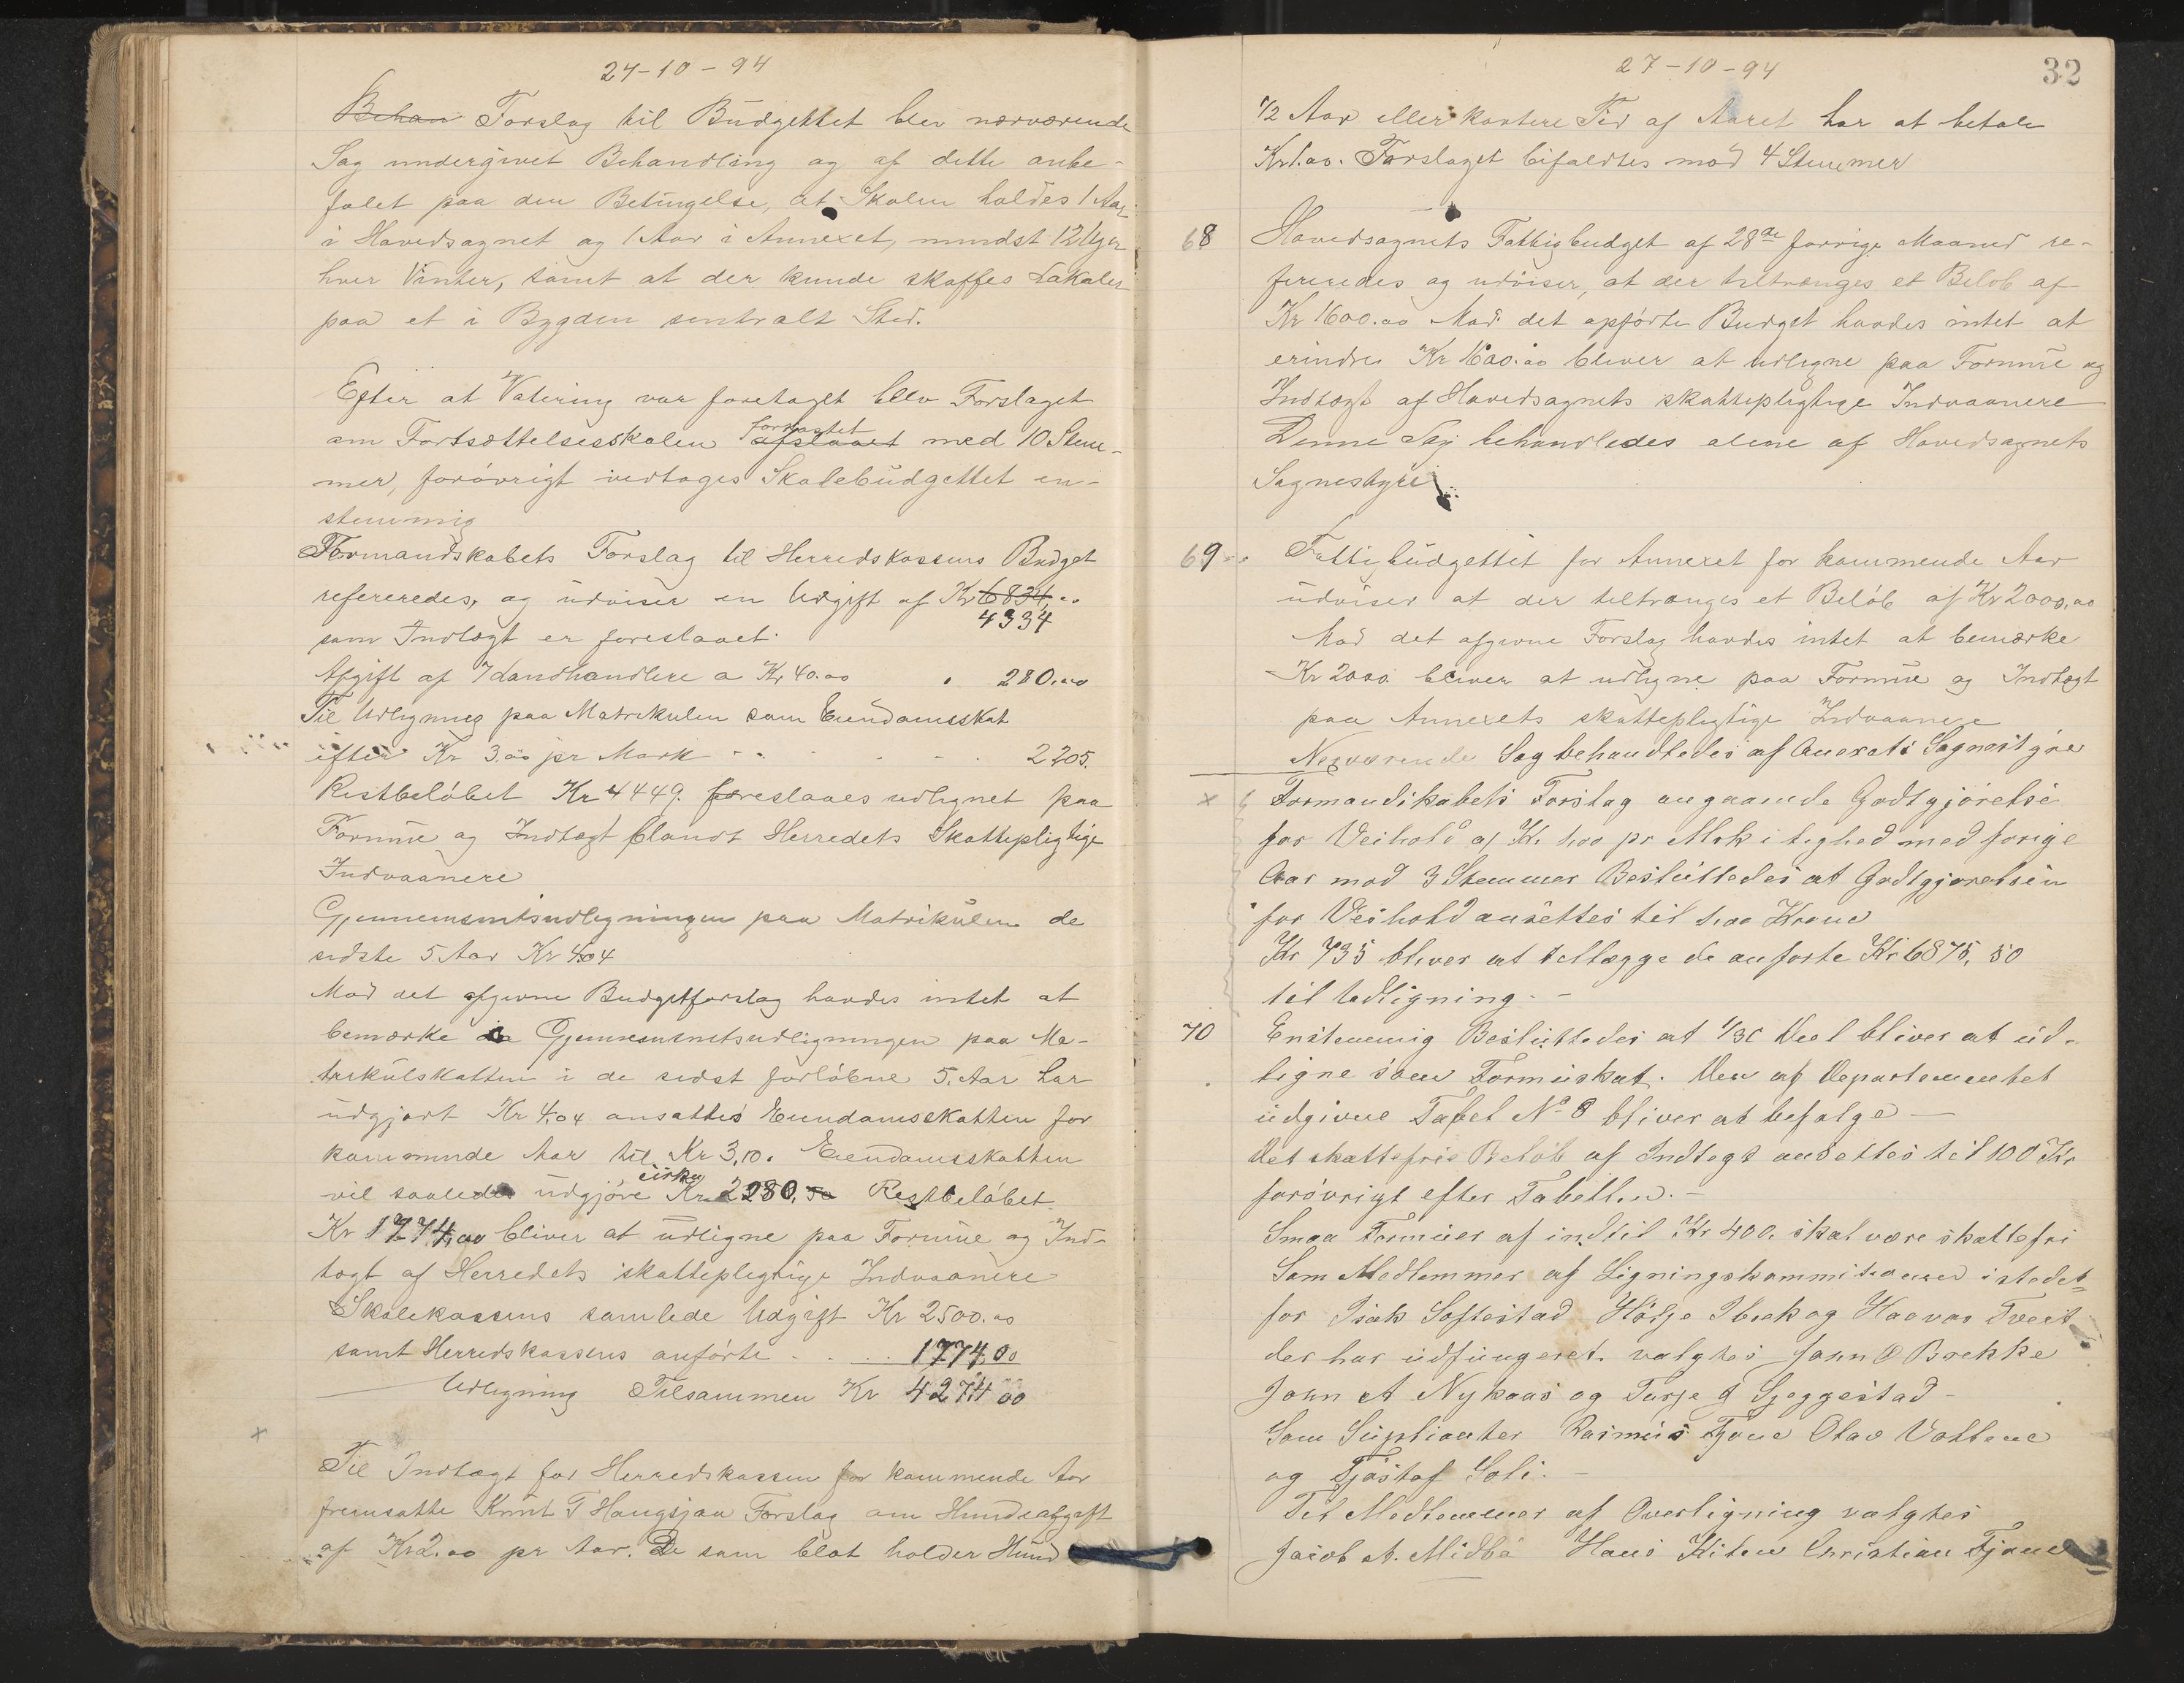 24-10-94
Behan Forslag til Budgettet blev nærværende
Sag undergivet Behandling og af dette anbe-
falet paa den Betingelse, at Skolen holdes 1 Aar
i Hovedsognet og 1 Aar i Annexet, mindst 12 Uger
hver Vinter, samt at der kunde skaffes Lokaler
paa et i Bygden sentralt Sted.
Efter at Votering var foretaget blev Forslaget
om Fortsættelsesskolen afslaaet forkastet med 10 Stem-
mer, forøvrigt vedtoges Skolebudgettet en-
stemmig
Formandskabets Forslag til Herredskassens Budget
refereredes, og udviser en Udgift af Kr 6834,00
4934
som Indtægt er foreslaaet:
Afgift af 7 Landhandlere a Kr 40.00 280.00
Til Udligning paa Matrikulen som Eiendomsskat
efter Kr 3.00 pr Mark 2205.
Restbeløbet Kr 4449. foreslaaes udlignet paa
Formue og Indtægt blandt Herredets Skattepligtige
Indvaanere
Gjennemsnitsudligningen paa Matrikulen de
sidste 5 Aar Kr 4.04
Mod det afgivne Budgetforslag havdes intet at
bemærke da Gjennemsnitsudligningen paa Ma-
trikulskatten i de sidst forløbne 5. Aar har
udgjort Kr 4,04 ansattes Eiendomsskatten for
kommende Aar til Kr 3,10. Eiendomsskatten
vil saaledes udgjøre cirka Kr 2280,50 Restbeløbet
Kr 1774,00 bliver at udligne paa Formue og Ind-
tægt af Herredets skattepligtige Indvaanere
Skolekassens samlede Udgift Kr 2500.00
samt Herredskassens anførte 1774,00
Udligning Tilsammen Kr 4274 00
Til Indtægt for Herredskassen for kommende Aar
fremsatte Knut T Haugsjaa Forslag om Hundeafgift
af Kr 2.00 pr Aar. De som blot holder Hund
27-10-94
32
1/2 Aar eller kortere Tid af Aaret har at betale
Kr 1.00. Forslaget bifaldtes mod 4 Stemmer
68 Hovedsognets Fattigbudget af 28de forrige Maaned re-
fereredes og udviser, at der tiltrænges et Beløb af
Kr 1600.00 Mod det opførte Budget havdes intet at
erindre. Kr 1600.00 bliver at udligne paa Formue og
Indtægt af Hovedsognets skattepligtige Indvaanere
Denne Sag behandledes alene af Hovedsognets
Sognestyre
69 Fattigbudgettet for Annexet for kommende Aar
udviser at der tiltrænges et Beløb af Kr 2000,00
Mod det afgivne Forslag havdes intet at bemærke
Kr 2000. bliver at udligne paa Formue og Indtægt
paa Annexets skattepligtige Indvaanere
Nærværende Sag behandledes af Anexets Sognestyre
Formandskabets Forslag angaaende Godtgjørelse
for Veihold af Kr. 1,00 pr Mrk i lighed med forige
Aar mod 3 Stemmer Besluttedes at Godtgjørelsen
for Veihold ansættes til 1,00 Krone
Kr 735 bliver at tillægge de anførte Kr 6875,50
til Udligning. -
70 Enstemmig Besluttedes at 1/30 Deel bliver at ud-
ligne som Formuskat. Den af Departementet
udgivne Tabel No 8 bliver at befølge -
Det skattefrie Beløb af Indtægt ansettes til 100 Kr
forøvrigt efter Tabellen. -
Smaa Formuer af indtil Kr 400. skal være skattefri
Som Medlemmer af Ligningskommisionen istedet-
for Isak Softestad Halje Ibrek og Haavar Tveit
der har udfungeret. valgtes John O Brekke
John A Nykaas og Turje G Sjeggestad -
Som Suplianter Rasmus Fjone Olav Vattene
og Tjøstaf Soli. -
Til Medlemmer af Overligning valgtes
Jacob A. Midbø Hans Kiten Christian Fjone